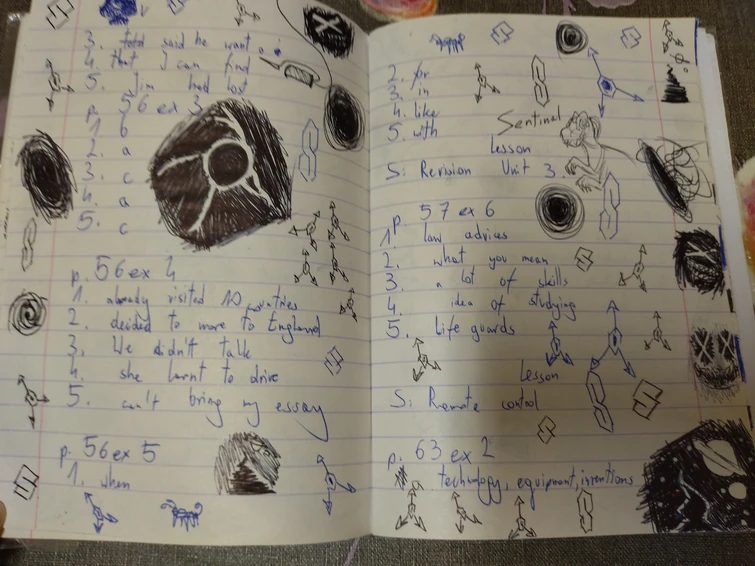 3. told said he want
4. that I can find
5. Jim had lost
p. 56 ex 3
1. b
2. a
3. c
4. a
5. c
p. 56 ex 4
1. already visited 10 countries
2. decided to move to England
3. We didn't talk
4. she lernt to drive
5. can't bring my essay
p. 56 ex 5
1. when
2. for
3. in
4. like
5. with
Sentinel
Lesson
S: Revision Unit 3.
p. 57 ex 6
1 law advices
2. what you mean
3. a lot of skills
4. idea of studying
5. Life guards
Lesson
S: Remote control
p. 63 ex 2
technology, equipment, inventions